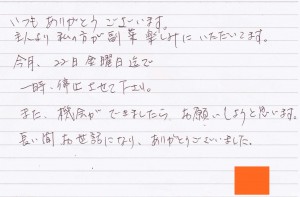 いつもありがとうございます。
主人より私の方が副菜楽しみにいただいてます。
今月、22日金曜日迄で
一時、停止させて下さい。
また、機会ができましたらお願いしようと思います。
長い間お世話になり、ありがとうございました。